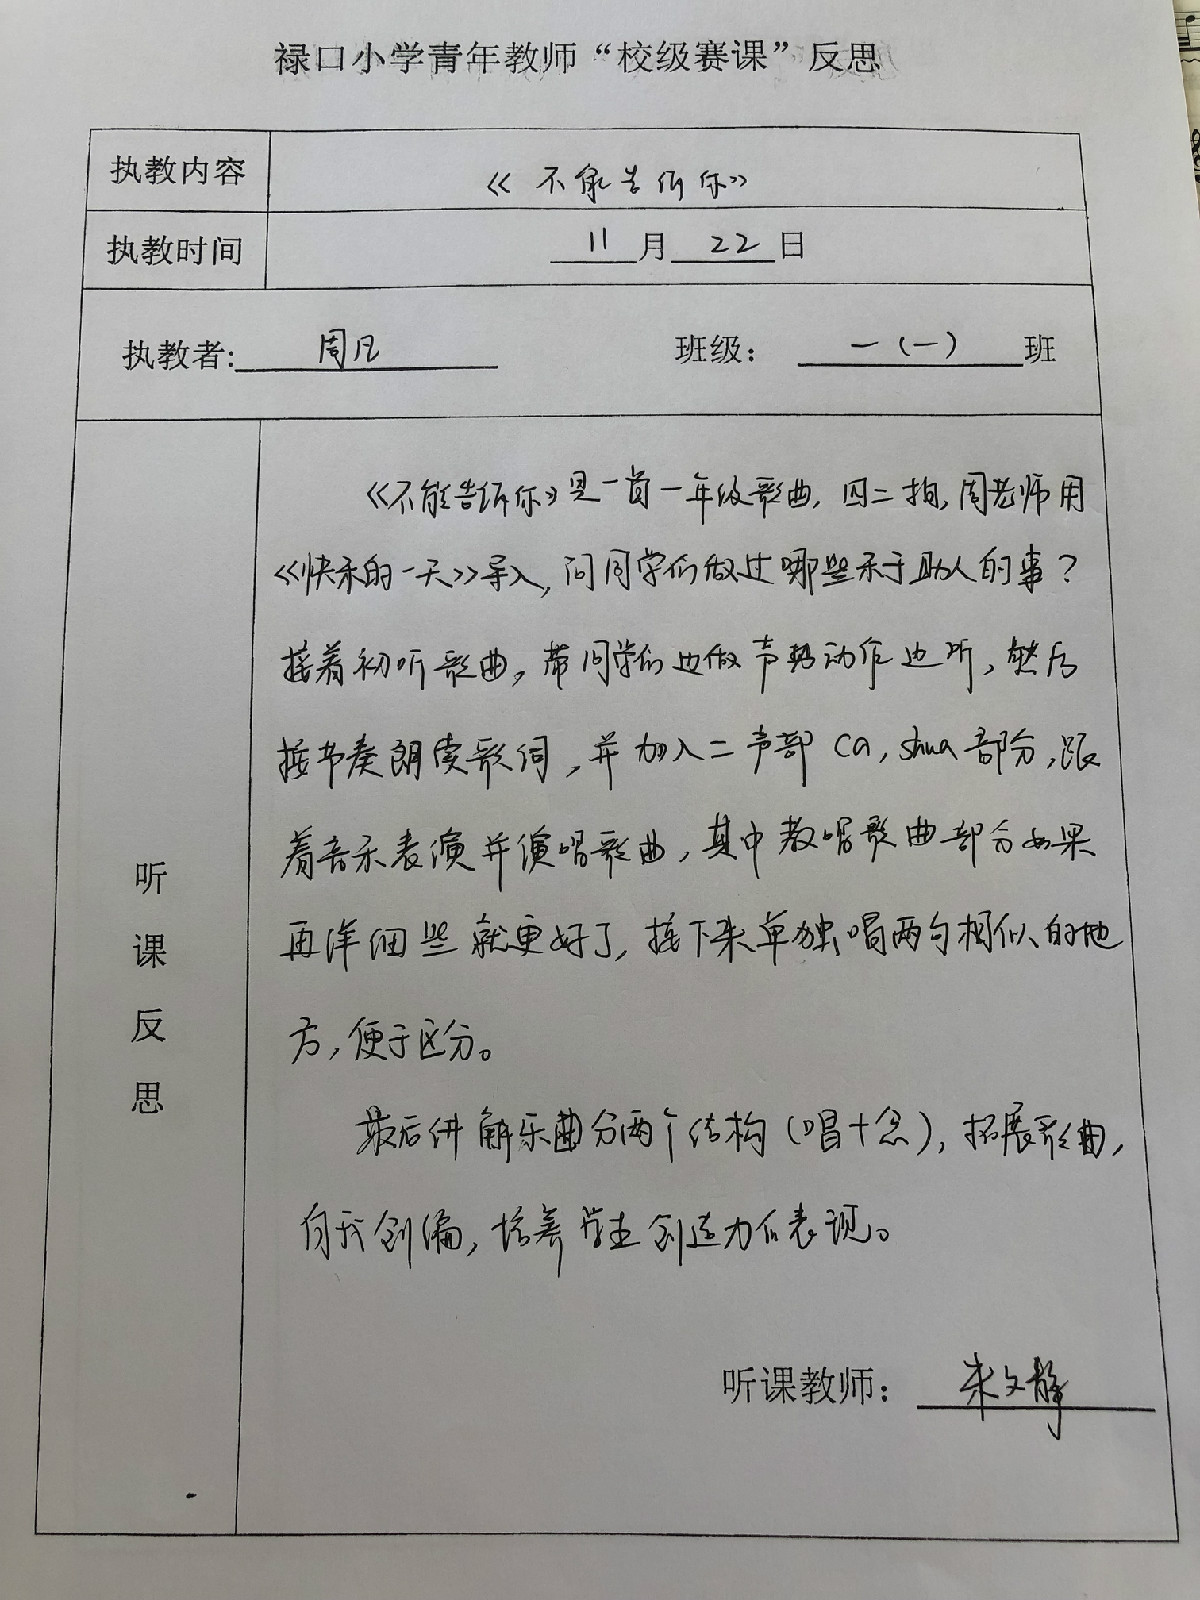 禄口小学青年教师“校级赛课”反思
执教内容 《不能告诉你》
执教时间 11月22日
执教者:周凡 班级：一(一)班
听课反思
《不能告诉你》是一首一年级歌曲，四二拍，周老师用
《快乐的一天》导入，问同学们做过哪些乐于助人的事？
接着初听歌曲，带同学们边做声势动作边听，然后
按节奏朗读歌词，并加入二声部 ca, shua部分，跟
着音乐表演并演唱歌曲，其中教唱歌曲部分如果
再详细些就更好了，接下来单独唱两句相似的地
方，便于区分。
最后讲解乐曲分两个结构(唱+念)，拓展歌曲，
自我创编，培养学生创造力和表现。
听课教师：朱文静